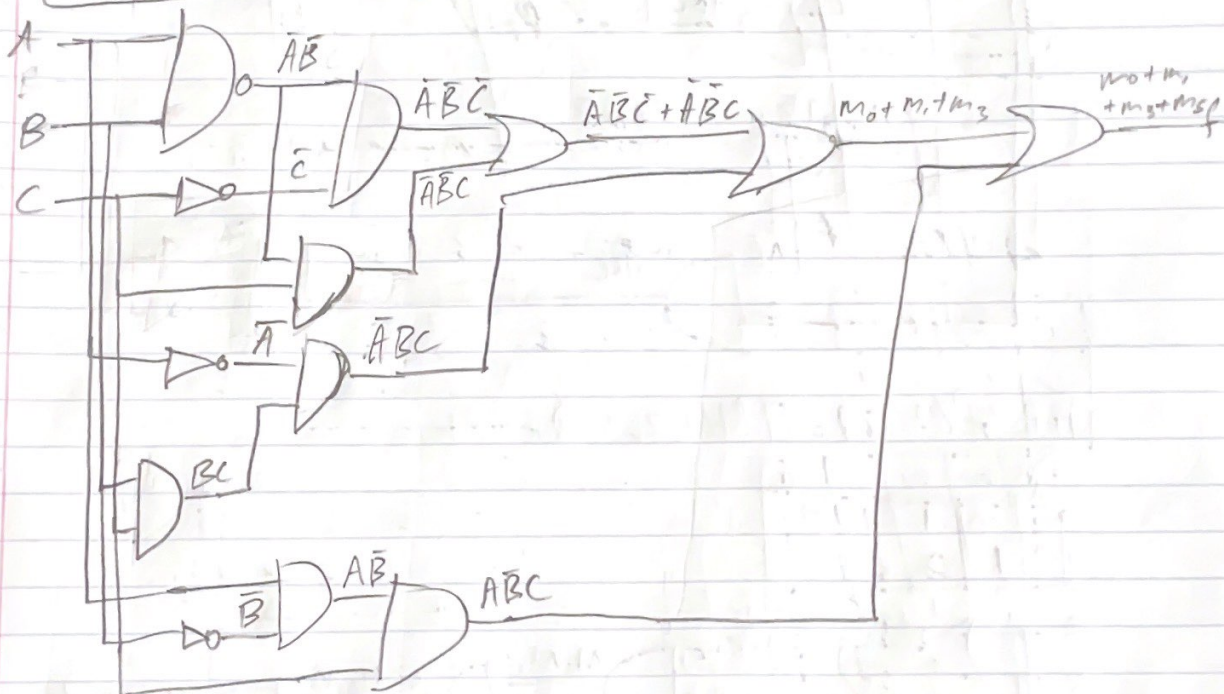 A
B
C
A̅B̅
C̅
A̅B̅C̅
A̅B̅C
A̅B̅C̅ + A̅B̅C
m₀ + m₁ + m₃
m₀ + m₁
+ m₃ + m₅
A̅
A̅BC
BC
B̅
AB̅
AB̅C